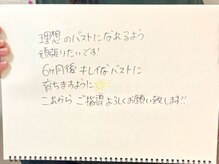 理想のバストになれるよう
頑張りたいです!
6ヶ月後キレイなバストに
育ちますように☆
これから ご指導よろしくお願い致します!!